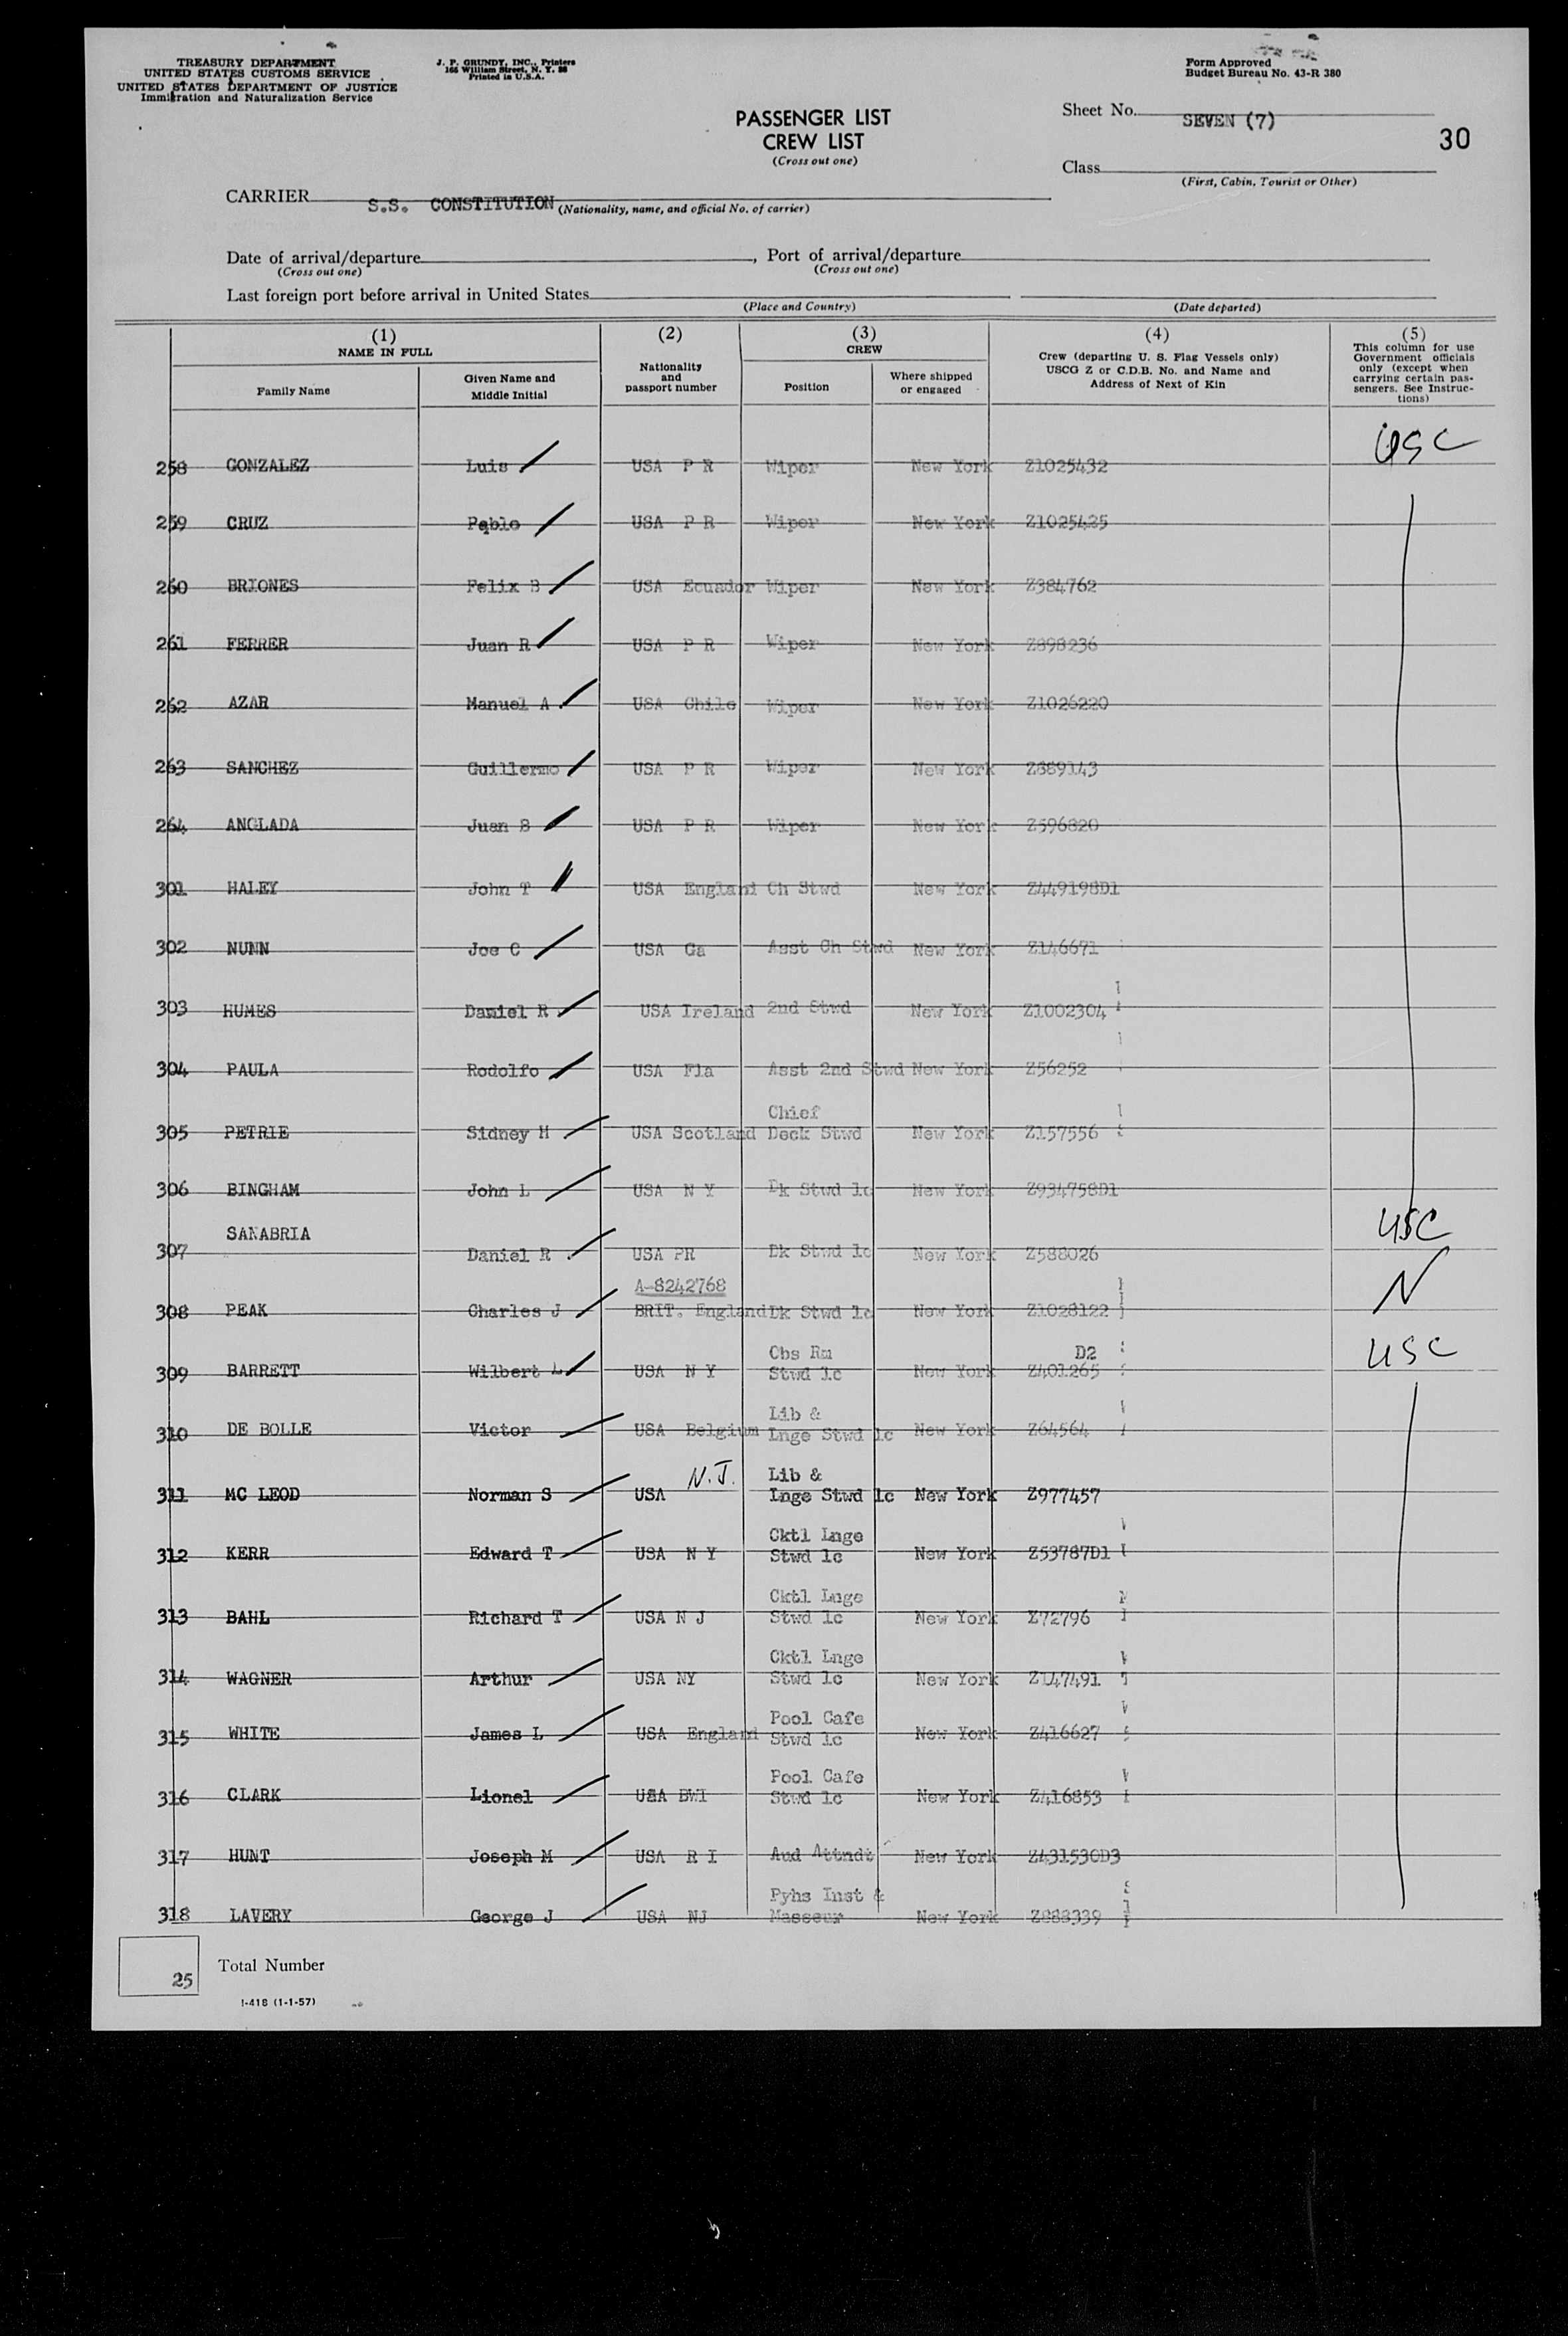 TREASURY DEPARTMENT
UNITED STATES CUSTOMS SERVICE
UNITED STATES DEPARTMENT OF JUSTICE
Immigration and Naturalization Service
J. P. GRUNDY, INC., Printers
166 William Street, N. Y. 38
Printed in U.S.A.
Form Approved
Budget Bureau No. 43-R 380
PASSENGER LIST
CREW LIST
(Cross out one)
Sheet No. SEVEN (7)
30
Class
(First, Cabin, Tourist or Other)
CARRIER S.S. CONSTITUTION (Nationality, name, and official No. of carrier)
Date of arrival/departure , Port of arrival/departure
(Cross out one) (Cross out one)
Last foreign port before arrival in United States
(Place and Country) (Date departed)
(1) (2) (3) (4) (5)
NAME IN FULL
Family Name
Given Name and
Middle Initial
Nationality
and
passport number
CREW
Position
Where shipped
or engaged
Crew (departing U. S. Flag Vessels only)
USCG Z or C.D.B. No. and Name and
Address of Next of Kin
This column for use
Government officials
only (except when
carrying certain pas-
sengers. See Instruc-
tions)
258 GONZALEZ Luis USA P R Wiper New York Z1025432 USC
259 CRUZ Pablo USA P R Wiper New York Z1025425
260 BRIONES Felix B USA Ecuador Wiper New York Z384762
261 FERRER Juan R USA P R Wiper New York Z898236
262 AZAR Manuel A USA Chile Wiper New York Z1026220
263 SANCHEZ Guillermo USA P R Wiper New York Z889143
264 ANGLADA Juan B USA P R Wiper New York Z596820
301 HALEY John T USA England Ch Stwd New York Z449198D1
302 NUNN Joe C USA Ga Asst Ch Stwd New York Z146671
303 HUMES Daniel R USA Ireland 2nd Stwd New York Z1002304
304 PAULA Rodolfo USA Fla Asst 2nd Stwd New York Z56252
Chief
305 PETRIE Sidney H USA Scotland Deck Stwd New York Z157556
306 BINGHAM John L USA N Y Dk Stwd 1c New York Z934758D1
SANABRIA USC
307 Daniel R USA PR Dk Stwd 1c New York Z588026
A-8242768 N
308 PEAK Charles J BRIT. England Dk Stwd 1c New York Z1028122
Obs Rm D2 USC
309 BARRETT Wilbert L USA N Y Stwd 1c New York Z401265
Lib &
310 DE BOLLE Victor USA Belgium Lnge Stwd 1c New York Z64564
N.J. Lib &
311 MC LEOD Norman S USA Lnge Stwd 1c New York Z977457
Cktl Lnge
312 KERR Edward T USA N Y Stwd 1c New York Z53787D1
Cktl Lnge
313 BAHL Richard T USA N J Stwd 1c New York Z72796
Cktl Lnge
314 WAGNER Arthur USA NY Stwd 1c New York Z147491
Pool Cafe
315 WHITE James L USA England Stwd 1c New York Z416627
Pool Cafe
316 CLARK Lionel USA BWI Stwd 1c New York Z416853
317 HUNT Joseph M USA R I Aud Attndt New York Z431530D3
Pyhs Inst &
318 LAVERY George J USA NJ Masseur New York Z888339
25 Total Number
I-418 (1-1-57)